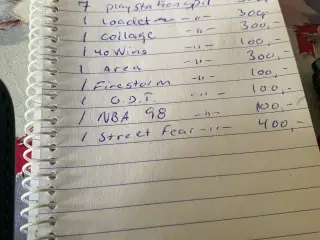 7 playstation spil 300,-
1 Loaded -"- 300,-
1 Collage -"- 300,-
1 40 Wins -"- 100,-
1 Area -"- 300,-
1 Firestorm -"- 100,-
1 O.D.T -"- 100,-
1 NBA 98 -"- 100,-
1 Street Fear -"- 400,-